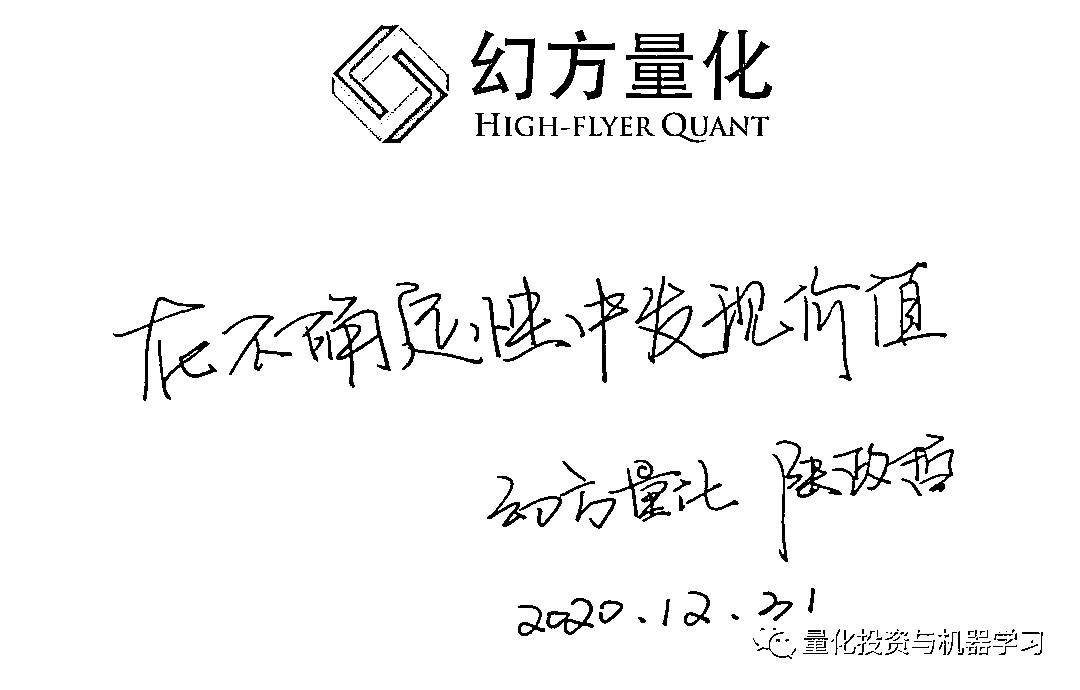 幻方量化
HIGH-FLYER QUANT
在不确定性中发现价值
幻方量化 陆政哲
2020.12.31
量化投资与机器学习